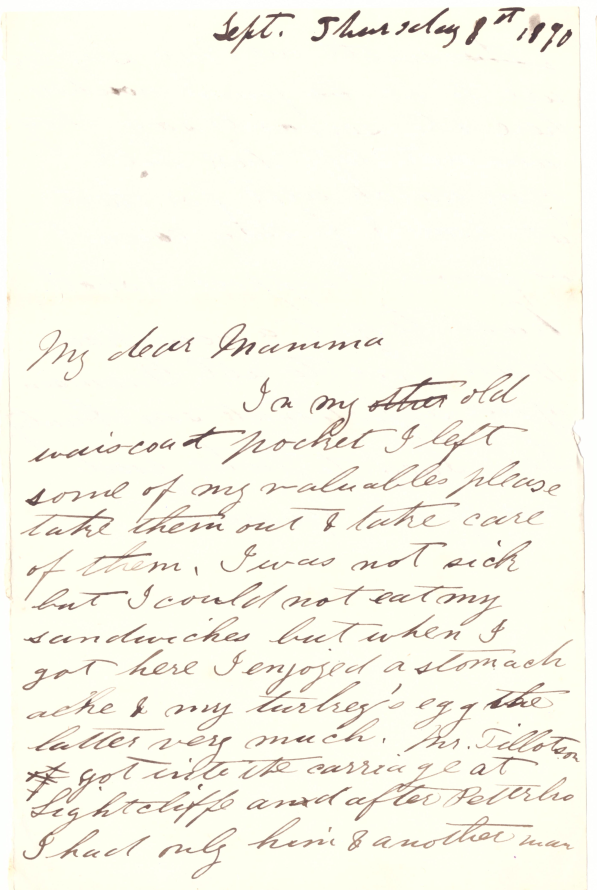 Sept. Thursday 8st, 1890
My dear Mamma
In my other old
waiscoat pocket I left
some of my valuables please
take them out & take care
of them. I was not sick
but I could not eat my
sandwiches but when I
got here I enjoyed a stomach
ache & my turkey's egg the
latter very much. Mr. Tillotson
got into the carriage at
Lightcliffe and after Petterbo
I had only him & another man